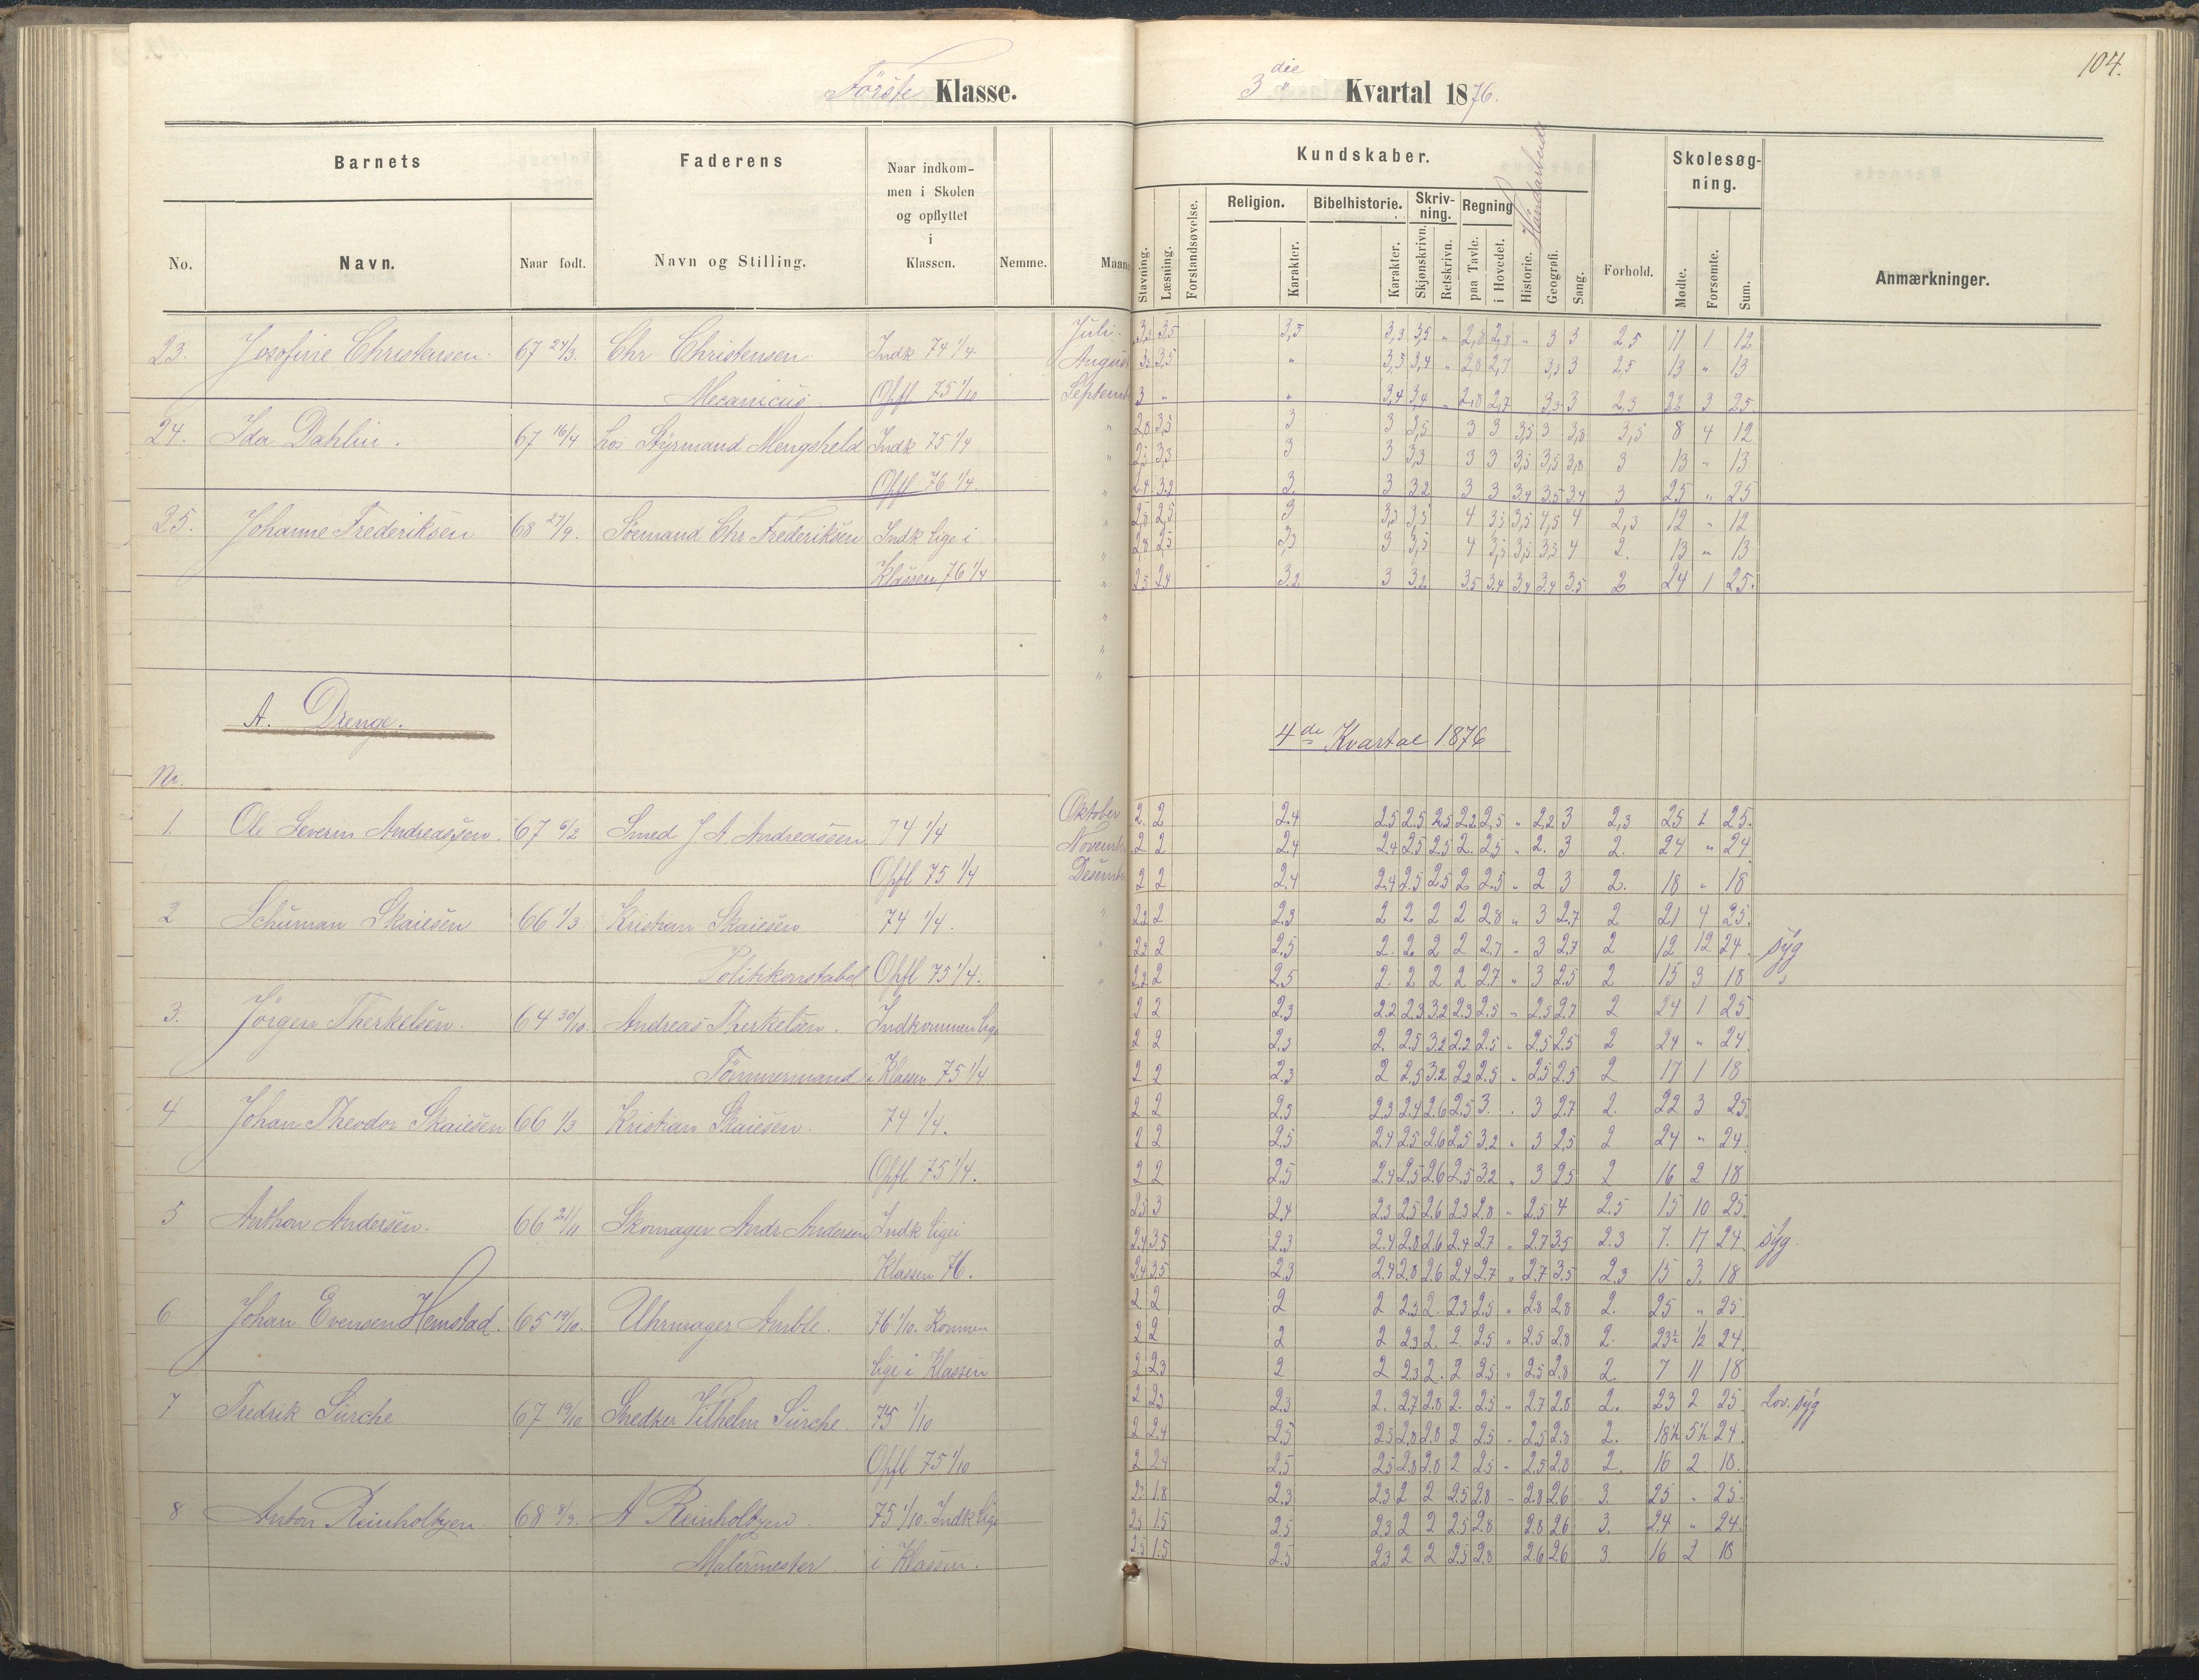 104.
Første Klasse.
3die Kvartal 1876.
Barnets
Faderens
Naar indkom-
men i Skolen
og opflyttet
i
Klassen.
Kundskaber.
Handarbeide
Skolesøg-
ning.
No.
Navn.
Naar født.
Navn og Stilling.
Nemme.
Maaned
Stavning.
Læsning.
Forstandsøvelse.
Religion.
Karakter.
Bibelhistorie.
Karakter.
Skriv-
ning.
Skjønskrivn.
Retskrivn.
Regning
paa Tavle.
i Hovedet.
Historie.
Geografi.
Sang.
Forhold.
Mødte.
Forsømte.
Sum.
Anmærkninger.
23. Josefine Christensen. 67 24/3. Chr Christensen. Indk 74 1/4 Juli 3,5 3,5 3,5 3,3 3,5 " 2,8 2,8 " 3 3 2,5 11 1 12
August 3,5 " 3,3 3,4 " 2,8 2,7 3,3 3 2,5 13 " 13
Mecanicus Opfl 75 1/10 Septemb 3 " " 3,4 3,4 " 2,8 2,7 3,3 3 2,3 22 3 25.
24. Ida Dahlin. 67 16/4 hos Styrmand Mengsheld Indk 75 1/4 " 2,8 3,5 3 3 3,5 3 3 3,5 3 3,8 3,5 8 4 12
" 2,5 3,3 3 3 3,3 3 3 3,5 3,5 3,8 3 13 " 13
Opfl 76 1/4. " 2.4 3.2 3. 3 3.2 3 3 3.4 3.5 3.4 3 25 " 25
25. Johanne Frederiksen 68 27/9. Sömand Chr Frederiksen Indk lige i " 2,8 2,5 3 3,3 3,5 4 3,5 3,5 4,5 4 2,3 12 " 12
" 2,8 2,5 3,3 3 3,5 4 3,5 3,5 3,5 4 2. 13 " 13
Klassen 76 1/4 " 2.5 2.4 3.2 3 3.2 3.5 3.4 3.4 3.4 3.5 2 24 1 25.
"
"
"
A. Drenge.
4de Kvartal 1876
Nr.
1. Ole Severin Andreassen. 67 6/2 Smed J A Andreassen 74 1/4 Oktober 2. 2 2.4 2.5 2.5 2.5 2.2 2,5 " 2,2 3 2,3 25 " 25.
November 2 2 2.4 2.4 2.5 2.5 2. 2.5 " 2. 3 2. 24 " 24
Opfl 75 1/4 Desember 2 2 2.4 2.4 2.5 2.5 2 2.5 " 2 3 2. 18 " 18
2 Schuman Skaiesen 66 1/3 Kristian Skaiesen 74 1/4. " 2.2 2 2.3 2 2 2 2 2.8 " 3 2.7 2 21 4 25.
" 2.2 2 2.5 2. 2 2 2 2.7 " 3 2.7 2 12 12 24. syg
Politikonstabel Opfl 75 1/4. " 2.2 2 2.5 2. 2 2 2 2.7 " 3 2.5 2 15 3 18 "
3. Jörgen Therkelsen. 64 30/10. Andreas Therkelsen. Indkommen lige 2 2 2.3 2.2 2.3 3.2 2.3 2.5 " 2.5 2.7 2 24 1 25.
2 2 2.3 2. 2.5 3.2 2.2 2.5 " 2.5 2.5 2 24 " 24
Tömmermand i Klassen 75 1/4 2 2 2.3 2 2.5 3.2 2.2 2.5 " 2.5 2.5 2 17 1 18
4 Johan Theodor Skaiesen 66 1/3 Kristian Skaiesen. 74 1/4. 2 2 2.3 2.3 2.4 2.6 2.5 3. . 3 2.7 2. 22 3 25.
2 2 2.5 2.4 2.5 2.6 2.5 3.2 " 3 2.5 2 24 " 24
Opfl 75 1/4. 2 2 2.5 2.4 2.5 2.6 2.5 3.2 " 3 2.5 2 16 2 18
5 Anthon Andersen. 66 21/11 Skomager Andr Andersen Indk lige i 2.3 3 2.4 2.3 2.5 2.6 2.3 2.8 " 2.5 4 2.5 15 10 25.
2.4 3.5 2.3 2.4 2.8 2.6 2.4 2.7 " 2.7 3.5 2.3 7. 17 24. syg.
Klassen 76. 2.4 3.5 2.3 2.4 2.8 2.6 2.4 2.7 " 2.7 3.5 2.3 15 3. 18
6 Johan Evensen Hemstad. 65 19/10. Uhrmager Amble. 76 1/10. Kommen 2 2 2 2 2.3 2. 2.3 2.5 " 2.8 2.8 2. 25 " 25
2 2 2 2 2.3 2. 2. 2.5 " 2.5 2.8 2. 23 1/2 1/2 24.
lige i Klassen 2 2.3 2 2 2.3 2. 2 2.5 " 2.5 2.8 2. 7 11 18
7 Fredrik Sürche 67 19/10 Snedker Vilhelm Sürche. 75 1/10 2 2.3 2.3 2. 2.7 2.8 2. 2.5 " 2.7 2.8 2. 23 2 25. Lov. syg
2 2.4 2.5 2.5 2.8 2.8 2 2.5 " 2.5 2.8 2. 18 1/2 5 1/2 24.
Opfl 75 1/10 2 2.4 2.5 2.5 2.8 2.8 2 2.5 " 2.5 2.8 2. 16 2 18.
8 Anton Reinholtzen. 68 8/3. A Reinholtzen 75 1/10. Indk lige 2.3 1.8 2.3 2.3 2 2 2.5 2.8 " 2.8 2.6 3. 25 " 25.
2.5 1.5 2.5 2.3 2 2 2.5 2.8 2.8 2.6 3. 24 " 24.
Malermester. i Klassen. 2.5 1.5 2.5 2.3 2 2 2.5 2.8 2.6 2.6 3. 16 2 18